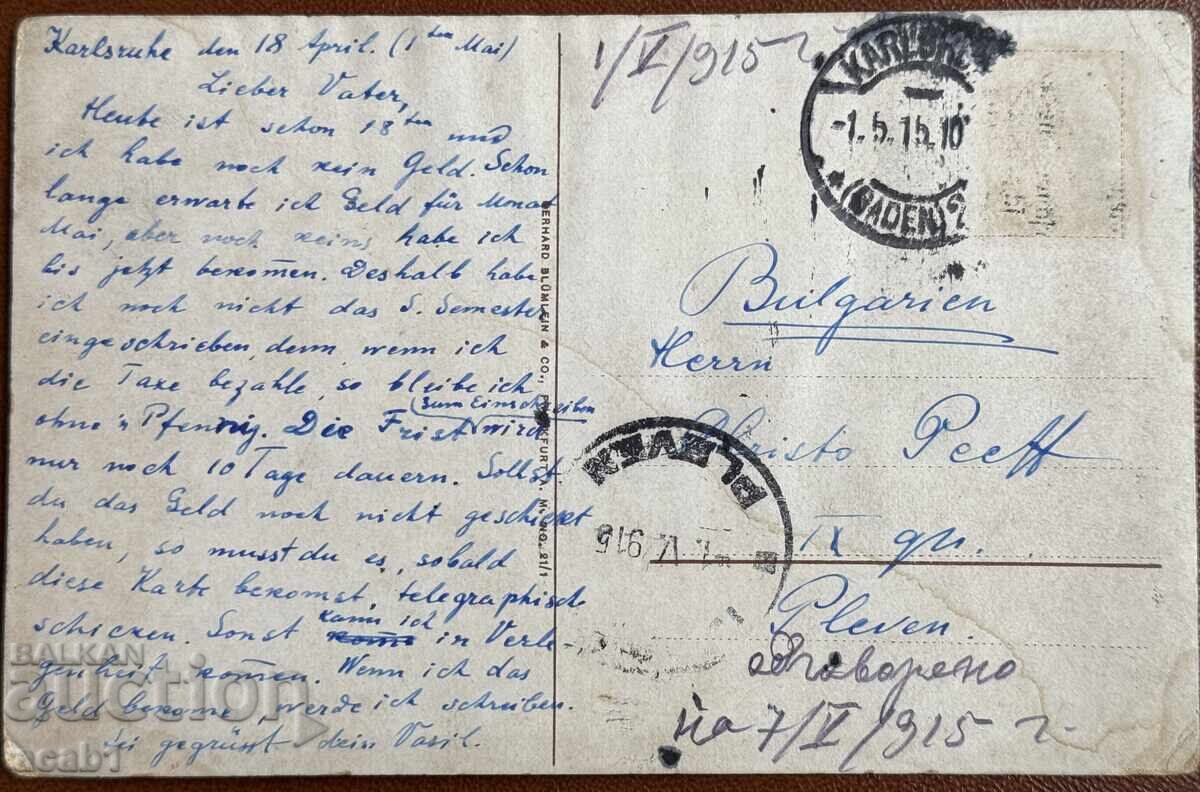 Karlsruhe den 18 April. (1ten Mai)
Lieber Vater,
Heute ist schon 18ten und
ich habe noch kein Geld. Schon
lange erwarte ich Geld für Monat
Mai, aber noch keins habe ich
bis jetzt bekom̄en. Deshalb habe
ich noch nicht das S. Semester
eingeschrieben, denn wenn ich
die Taxe bezahle, so bleibe ich
ohne 'n Pfennig. Die Frist zum Einschreiben wird
nur noch 10 Tage dauern. Sollst
du das Geld noch nicht geschickt
haben, so musst du es, sobald
diese Karte bekomst, telegraphisch
schicken. Sonst kann ich in Verle-
genheit kom̄en. Wenn ich das
Geld bekome, werde ich schreiben.
Sei gegrüsst dein Vasil.
GERHARD BLÜMLEIN & CO., FRANKFURT A. M. NO. 21/1
1/V/915 г.
KARLSRUHE
-1.5.15.10
(BADEN) 2
Bulgarien
Herrn
Christo Peeff
IX
Pleven.
PLEVEN
V 915
отговорено
на 7/V/915 г.
BALKAN
auction
acab1